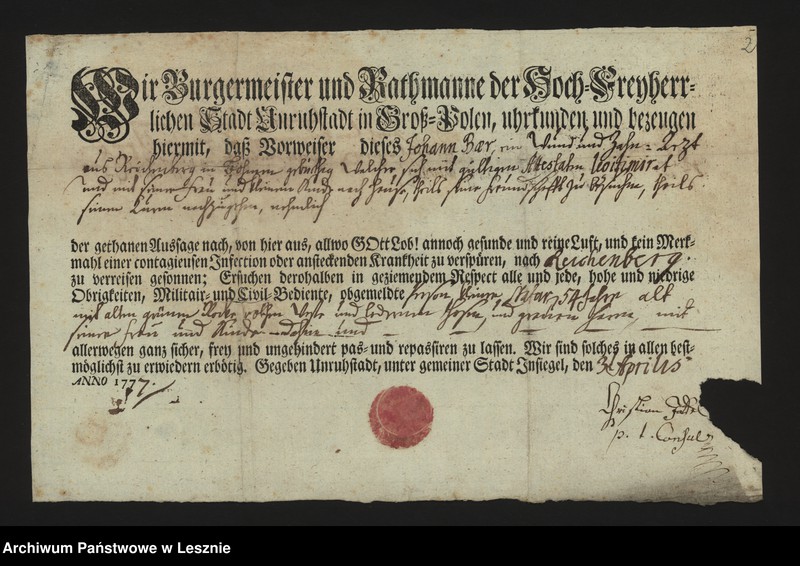 2
Wir Burgermeister und Rathmanne der Hoch-Freyherr-
lichen Stadt Unruhstadt in Groß-Polen, uhrkunden und bezeugen
hiermit, daß Vorweiser dieses Johann Bær, ein Wund und Zahn-Arzt
aus Reichenberg in Böhmen gebürtig welcher sich mit gültigen Attestaten legitimiret
und mit seiner Frau und kleinem Kinde nach Hause, theils seine Freundschafft zu besuchen, theils
seinen Curen nachzugehen, nehmlich
der gethanen Aussage nach, von hier aus, allwo GOtt Lob! annoch gesunde und reine Luft, und kein Merk-
mahl einer contagieusen Infection oder ansteckenden Krankheit zu verspüren, nach Reichenberg.
zu verreisen gesonnen; Ersuchen derohalben in geziemendem Respect alle und jede, hohe und niedrige
Obrigkeiten, Militair- und Civil-Bediente, obgemeldte Person 54 Jahr alt
mit altem grünem Rocke rothen Weste und ledernen Hosen, und Haren, mit
seiner Frau und Kinde und
allerwegen ganz sicher, frey und ungehindert pas- und repassiren zu lassen. Wir sind solches in allen best-
möglichst zu erwiedern erbötig. Gegeben Unruhstadt, unter gemeiner Stadt Insiegel, den 3 Aprilis
ANNO 1777.
Christian
p. t. Consul
Archiwum Państwowe w Lesznie